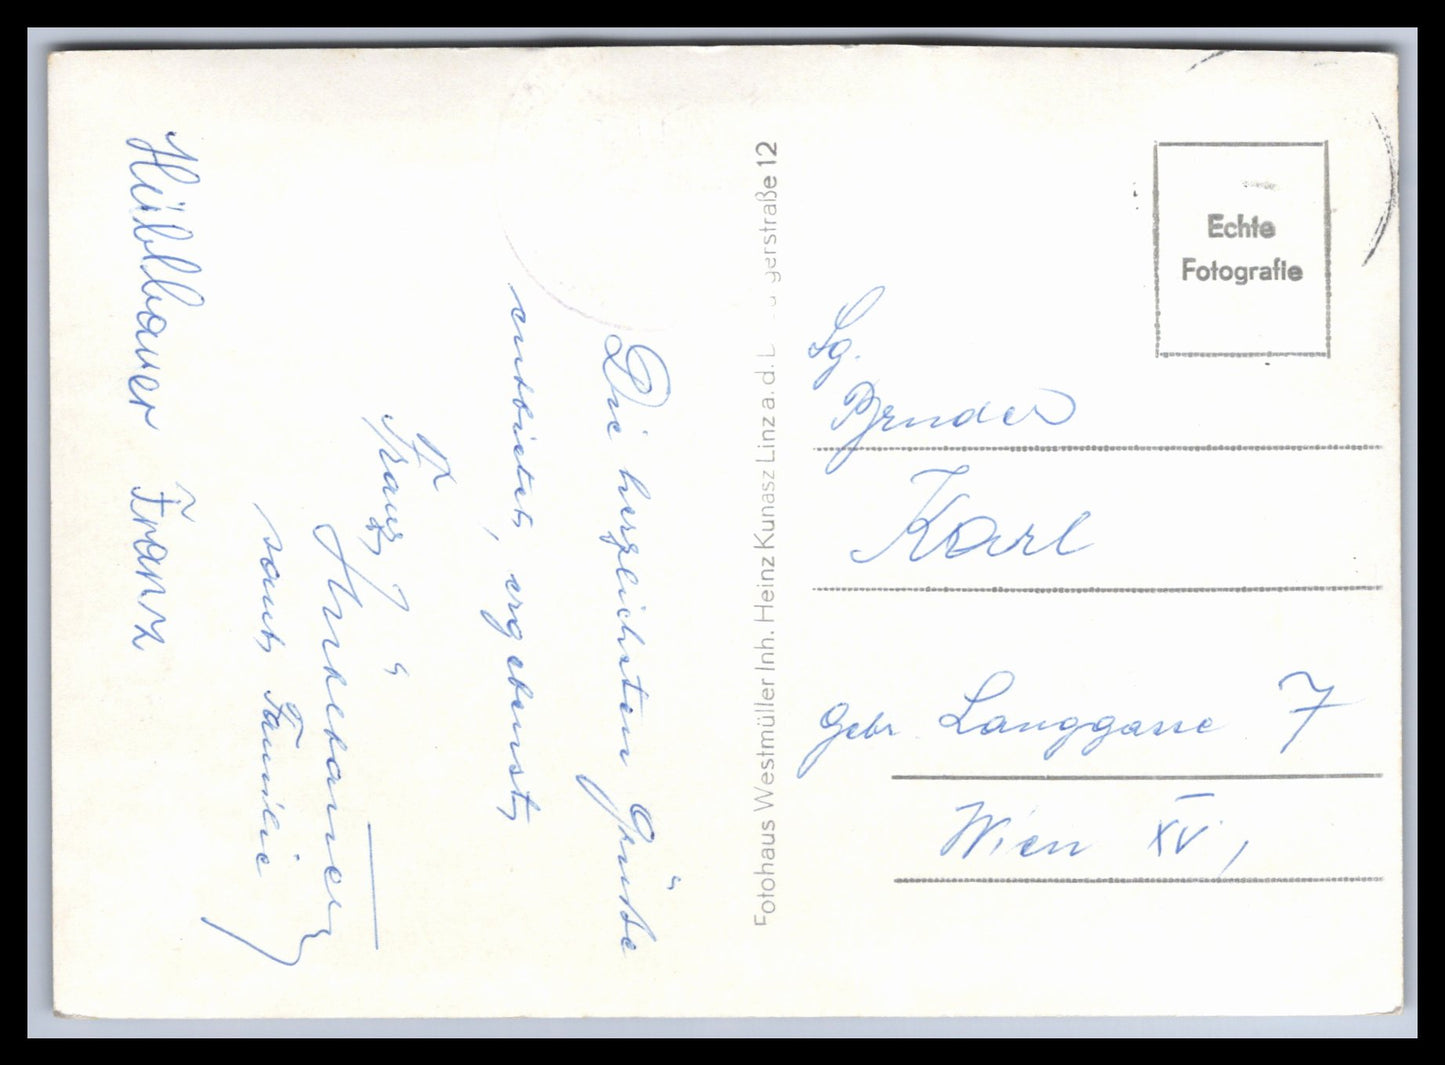 Die herzlichsten Grüße
entbietet, ergebenst,
Franz
Hüblbauer
samt, Familie
Hüblbauer Franz
Fotohaus Westmüller Inh. Heinz Kunasz Linz a. d. gerstraße 12
Echte
Fotografie
Sg.
Bruder
Karl
Gebr Langgasse 7
Wien XV,